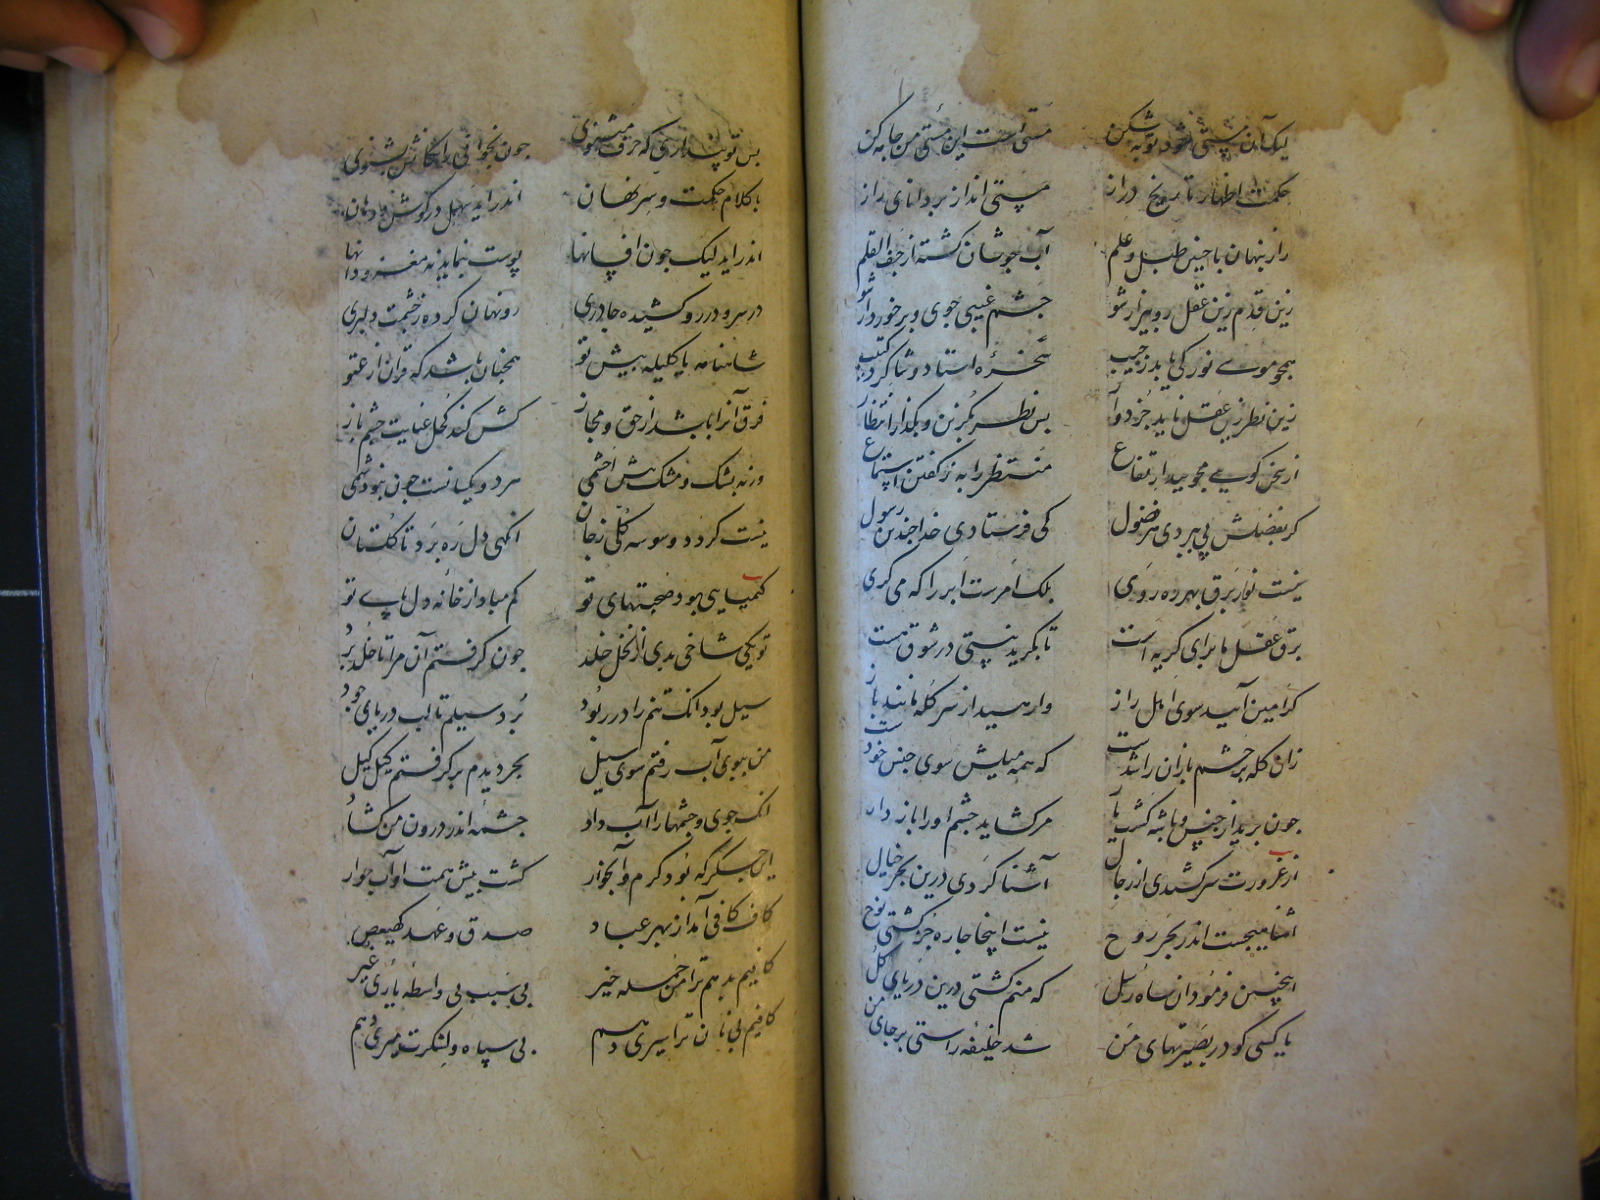 لیک آن مستی شود توبه شکن مستی است این مستی من جامه کن
حکمت اظهار تاریخ دراز مستی انداز بر دانای راز
راز پنهان با چنین طبل و علم آب جوشان کشته از جف القلم
زین قدم زین عقل رو بیزار شو چشم غیبی جوی و برخوردار شو
همچو موسی نور کی یابد ز جیب سخره استاد و شاکرد کتیب
زین نظر زین عقل ناید جز دوار بس نظر بکزین و بکذار انتظار
از سخن کویی مجویید ارتفاع منتظر را به ز کفتن استماع
کر بفضلش پی ببردی هر فضول کی فرستادی خدا چندین رسول
نیست نور برق بهر ره روی بلک امرست ابر را که می کری
برق عقل ما برای کریه است تا بکرید نیستی در شوق هست
کرامین آید سوی اهل راز وارهید از سر کله مانند باز
زان کله بر چشم بازان را شدست که همه میلش سوی جنس خودست
جون برید از جنس و با شه کشت یار مر کشاید چشم او را باز دار
از غرورت سر کشیدی از رجال آشنا کردی درین بحر خیال
آشنا هیچست اندر بحر روح نیست اینجا جاره جز کشتی نوح
اینچنین فرمود ان شاه رسل که منم کشتی درین دریای کل
یا کسی کو در بصیرتهای من شد خلیفه راستی بر جای من
بس تو پنداری که حرف مثنوی جون بخوانی رایکانش بشنوی
یا کلام حکمت و سر نهان اندر اید سهل در کوش و دهان
اندر اید لیک جون افسانها پوست بنماید نه مغز و دانها
در سر و در رو کشیده جادری رو نهان کرده ز چشمت دلبری
شاهنامه یا کلیله پیش تو همچنان باشد که قران از عتو
فرق آنرا باشد از حق و مجاز کش کند کحل عنایت چشم باز
ورنه بشک و مشک پیش اخشمی هر دو یکسانست جون نبود شمی
نیست کردد وسوسه کلی ز جان انکهی دل ره برد تا کلستان
کیمیایی بود صحبتهای تو کم مباد از خانه دل پای تو
تو یکی شاخی بدی از نخل خلد جون کرفتم آن مرا تا خلد برد
سیل بود انک تنم را در ربود برد سیلم تا لب دریای جود
من ببوی آب رفتم سوی سیل بحر دیدم بر کرفتم کیل کیل
انک جوی و چشمها را آب داد چشمه اندر درون من کشاد
این جکر که بود کرم و آبخوار کشت پیش همت او آب خوار
کاف کافی آمد از بهر عباد صدق وعد کهیعص
کافیم بدهم ترا من جمله خیر بی سبب بی واسطه یاری غیر
کافیم بی نان ترا سیری دهم بی سپاه و لشکرت میری دهم